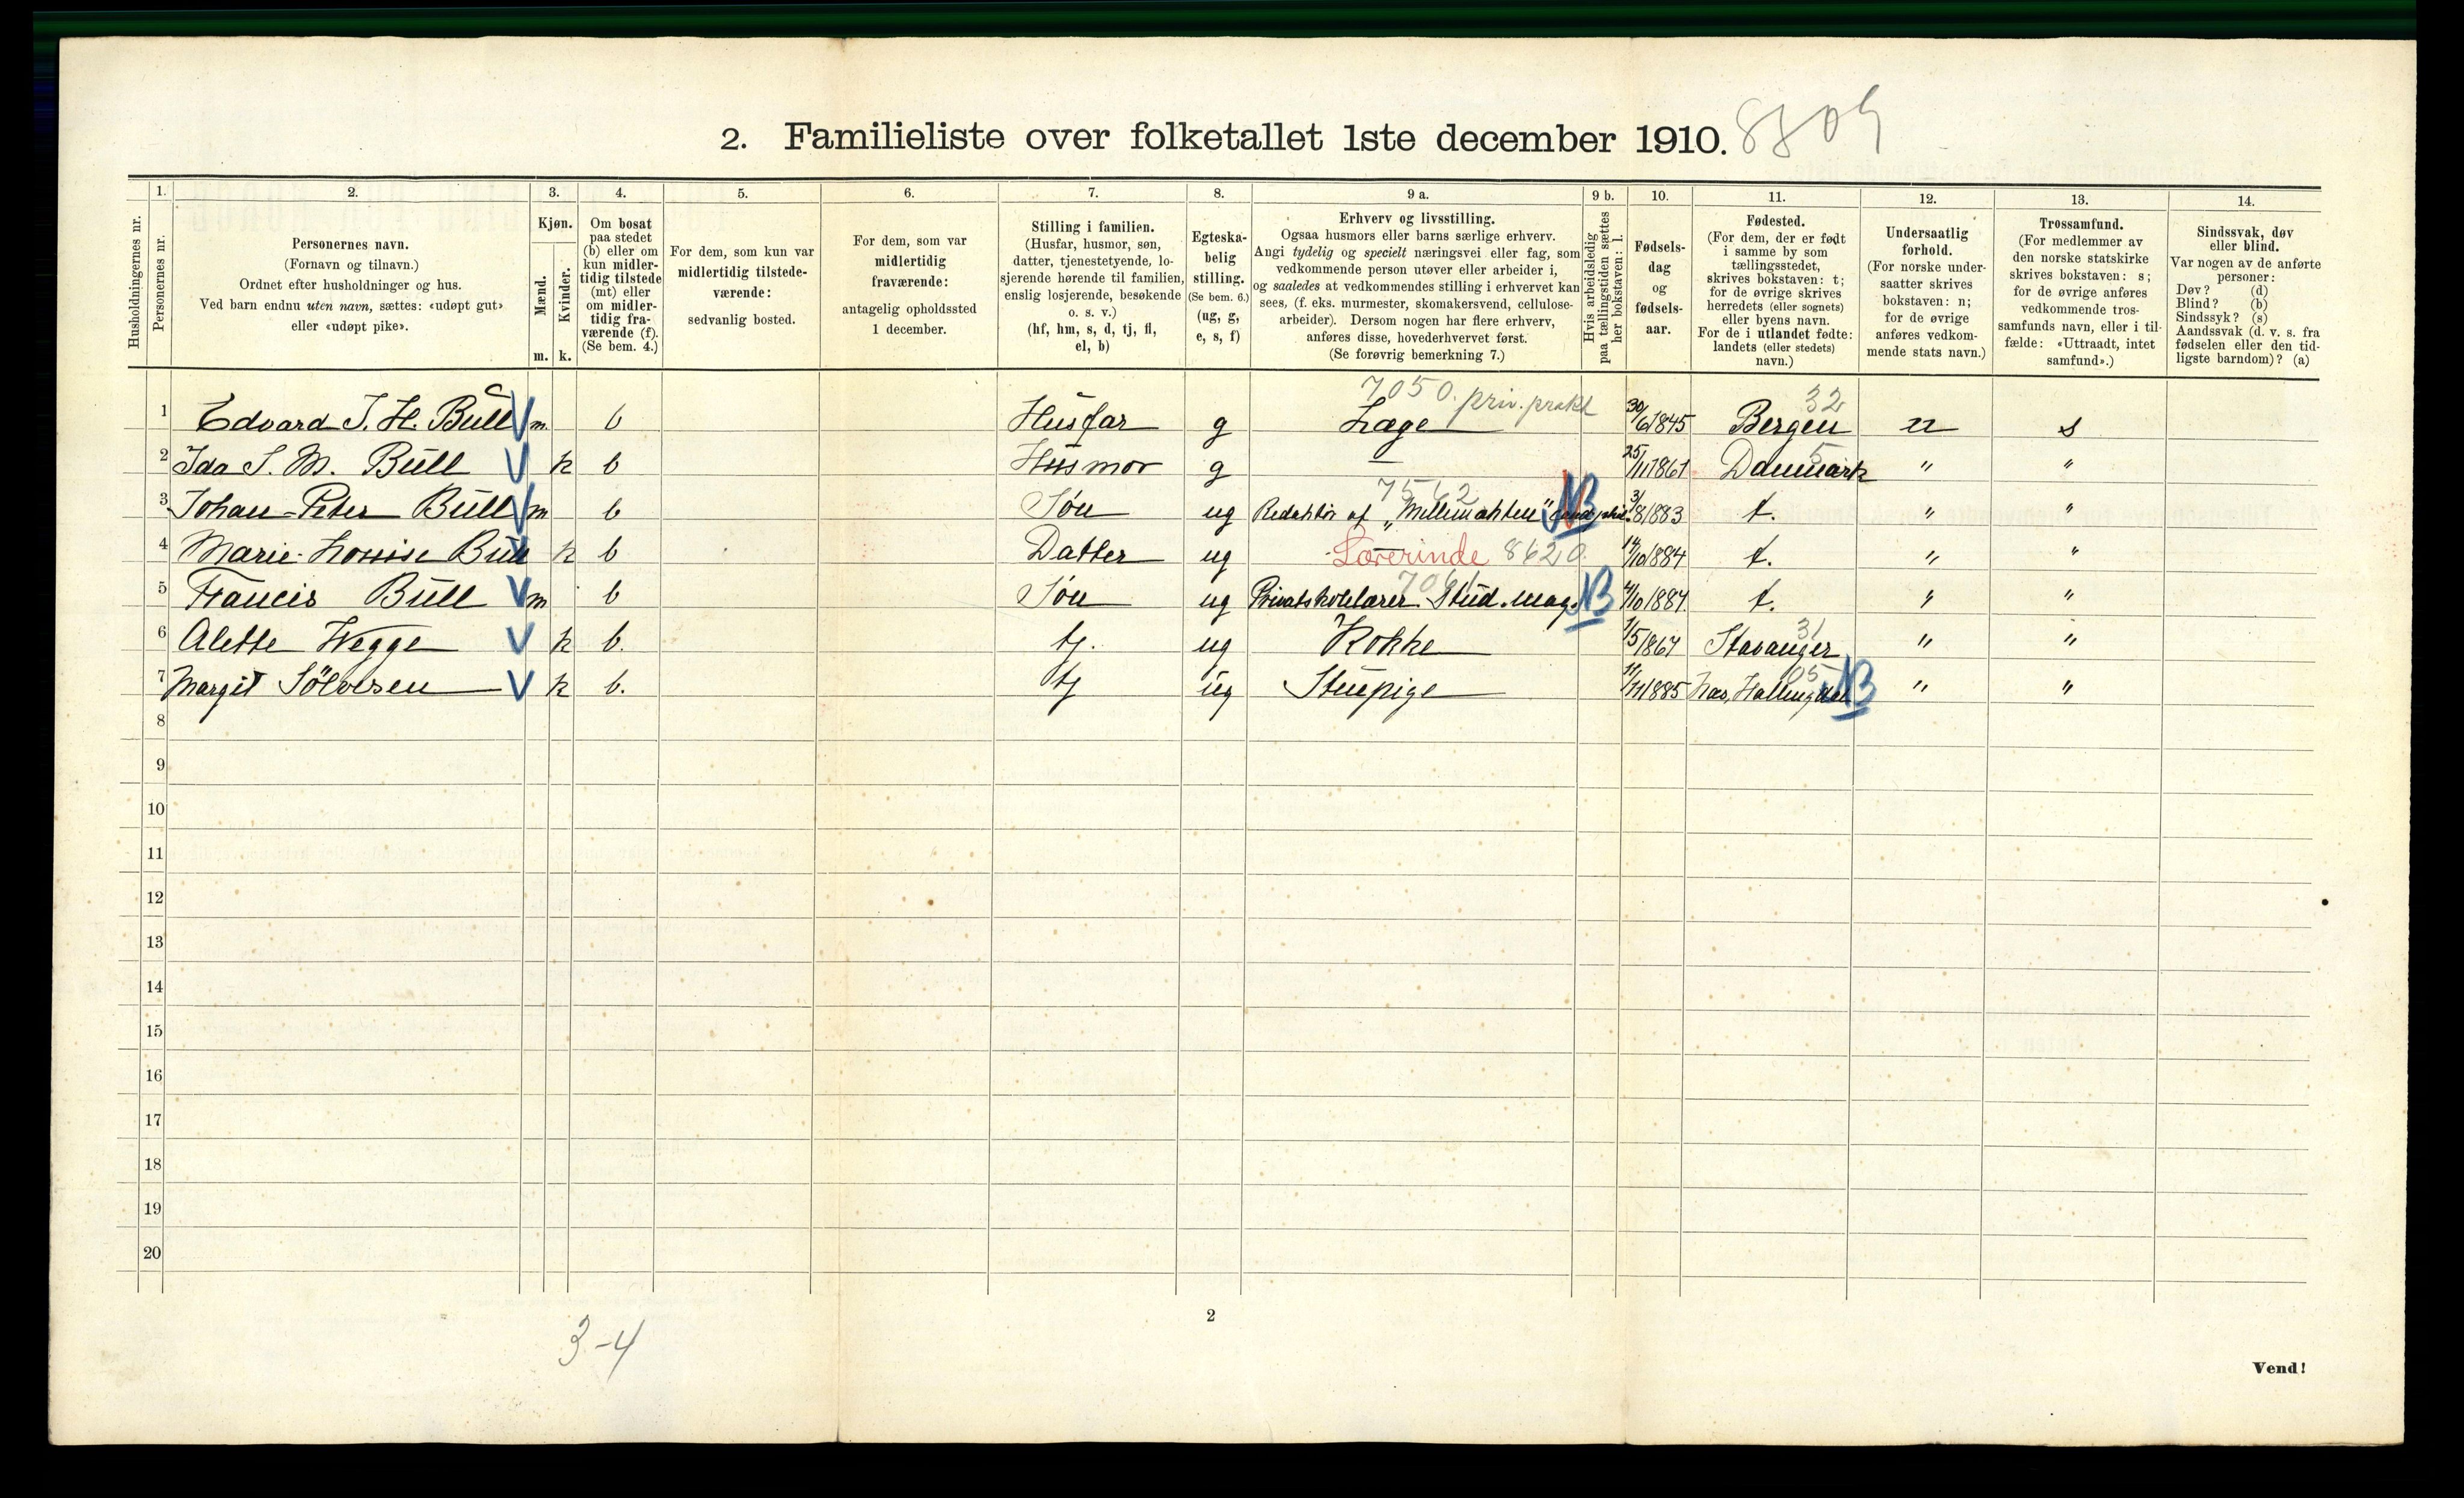 2. Familieliste over folketallet 1ste december 1910. 8809
Husholdningernes nr.
1. Personernes nr.
2. Personernes navn. (Fornavn og tilnavn.) Ordnet efter husholdninger og hus. Ved barn endnu uten navn, sættes: «udøpt gut» eller «udøpt pike».
3. Kjøn. Mænd. m. Kvinder. k.
4. Om bosat paa stedet (b) eller om kun midler-tidig tilstede (mt) eller om midler-tidig fra-værende (f). (Se bem. 4.)
5. For dem, som kun var midlertidig tilstede-værende: sedvanlig bosted.
6. For dem, som var midlertidig fraværende: antagelig opholdssted 1 december.
7. Stilling i familien. (Husfar, husmor, søn, datter, tjenestetyende, lo-sjerende hørende til familien, enslig losjerende, besøkende o. s. v.) (hf, hm, s, d, tj, fl, el, b)
8. Egteska-belig stilling. (Se bem. 6.) (ug, g, e, s, f)
9 a. Erhverv og livsstilling. Ogsaa husmors eller barns særlige erhverv. Angi tydelig og specielt næringsvei eller fag, som vedkommende person utøver eller arbeider i, og saaledes at vedkommendes stilling i erhvervet kan sees, (f. eks. murmester, skomakersvend, cellulose-arbeider). Dersom nogen har flere erhverv, anføres disse, hovederhvervet først. (Se forøvrig bemerkning 7.)
9 b. Hvis arbeidsledig paa tællingstiden sættes her bokstaven: l.
10. Fødsels-dag og fødsels-aar.
11. Fødested. (For dem, der er født i samme by som tællingsstedet, skrives bokstaven: t; for de øvrige skrives herredets (eller sognets) eller byens navn. For de i utlandet fødte: landets (eller stedets) navn.)
12. Undersaatlig forhold. (For norske under-saatter skrives bokstaven: n; for de øvrige anføres vedkom-mende stats navn.)
13. Trossamfund. (For medlemmer av den norske statskirke skrives bokstaven: s; for de øvrige anføres vedkommende tros-samfunds navn, eller i til-fælde: «Uttraadt, intet samfund».)
14. Sindssvak, døv eller blind. Var nogen av de anførte personer: Døv? (d) Blind? (b) Sindssyk? (s) Aandssvak (d. v. s. fra fødselen eller den tid-ligste barndom)? (a)
7050. priv. prakt 32
1 Edvard I. H. Bull V m b Husfar g Læge 30/6 1845 Bergen n s
2 Ida S. M. Bull V k b Husmor g — 25/11 1861 Danmark 5 " "
7562
3 Johan-Peter Bull V m b Søn ug Redaktør af "Millemakten" cand. phil. NB 3/8 1883 t. " "
4 Marie-Louise Bull V k b Datter ug Lærerinde 8620. 14/10 1884 t. " "
5 Francis Bull V m b Søn ug Privatskolelærer. Stud. mag. 7061 NB 4/10 1887 t. " "
6 Alette Wegge V k b. tj. ug Kokke 1/5 1867 Stavanger 31 " "
7 Margit Sölvesen V k b. tj ug Stuepige 11/11 1885 Næs, Hallingdal 05 NB " "
8
9
10
11
12
13
14
15
16
17
18
19
20
2
3-4
Vend!